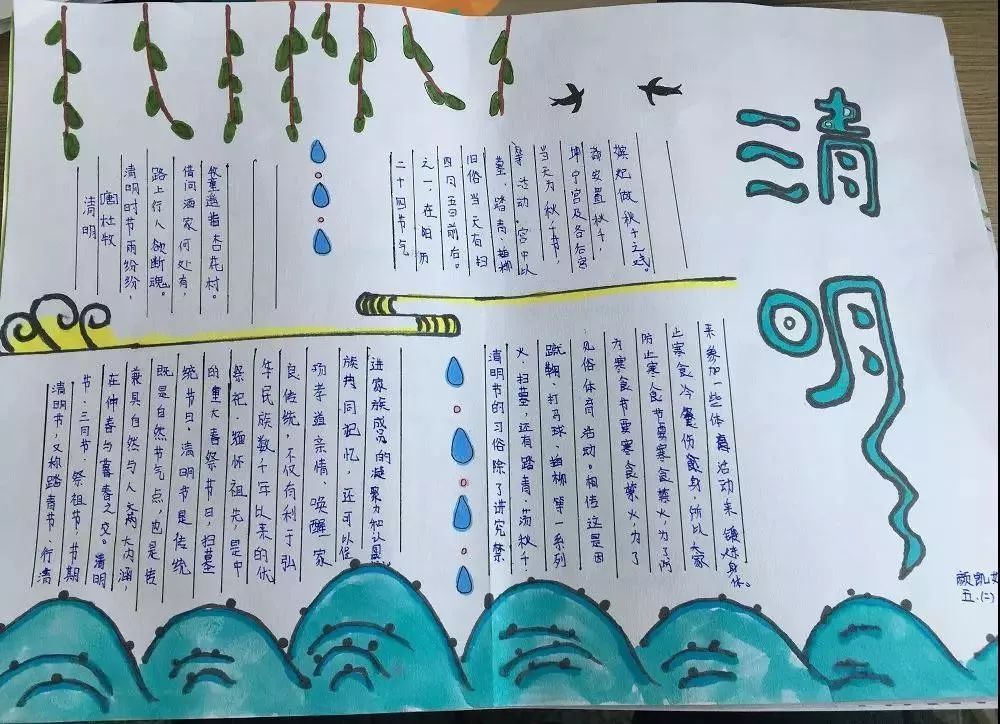 清明
清明
唐杜牧
清明时节雨纷纷,
路上行人欲断魂。
借问酒家何处有,
牧童遥指杏花村。
二十四节气
之一,在阳历
四月五日前后。
旧俗当天有扫
墓、踏青、插柳
等活动.宫中以
当天为秋千节,
坤宁宫及各后宫
都安置秋千,
嫔妃做秋千之戏。
清明节,又称踏青节、行清
节、三月节、祭祖节,节期
在仲春与暮春之交。清明
兼具自然与人文两大内涵,
既是自然节气点,也是传
统节日.清明节是传统
的重大春祭节日,扫墓
祭祀、缅怀祖先,是中
华民族数千年以来的优
良传统,不仅有利于弘
扬孝道亲情、唤醒家
族共同记忆,还可以促
进家族成员的凝聚力和认同
清明节的习俗除了讲究禁
火、扫墓,还有踏青、荡秋千、
蹴鞠、打马球、插柳等一系列
风俗体育活动。相传这是因
为寒食节要寒食禁火,为了
防止寒食节要寒食禁火,为了防
止寒食冷餐伤身,所以大家
来参加一些体育活动来锻炼身体。
颜凯
五.(二)